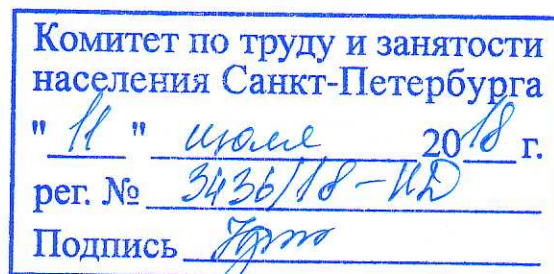 Комитет по труду и занятости
населения Санкт-Петербурга
" 11 " июля 2018 г.
рег. № 3436/18-КД
Подпись